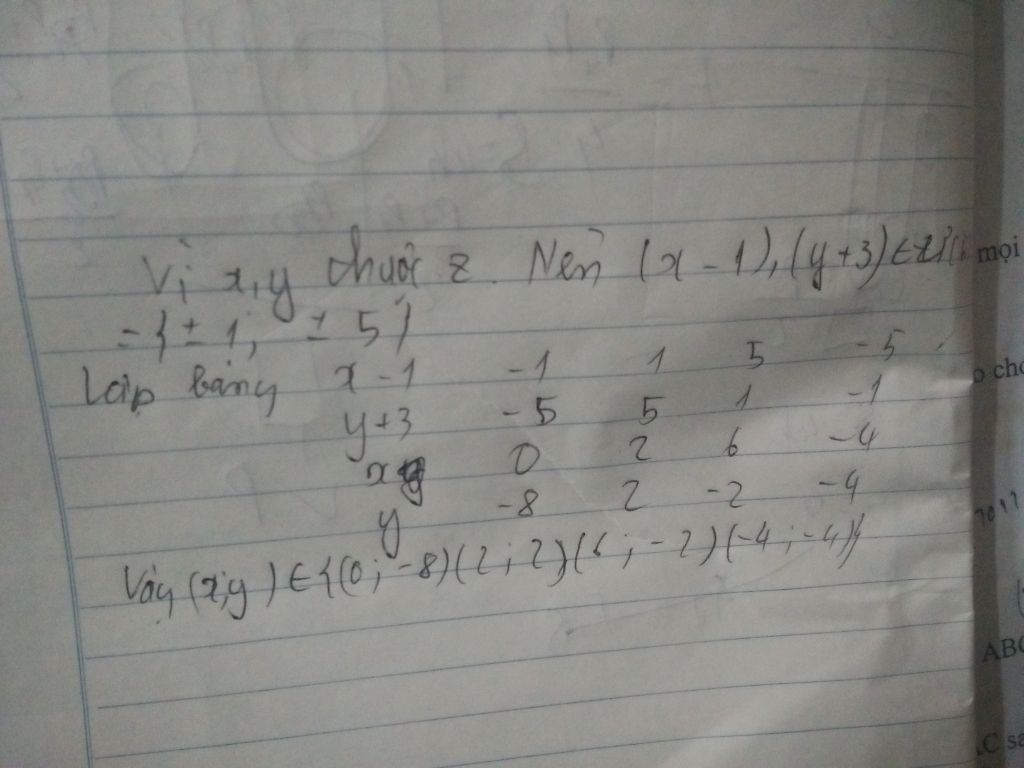 Vì x,y thuộc Z. Nên (x - 1), (y+3) ∈ Ư(
= {± 1; ± 5}
Lập bảng x - 1 -1 1 5 -5
y+3 -5 5 1 -1
x 0 2 6 -4
y -8 2 -2 -4
Vậy (x;y) ∈ {(0; -8)(2; 2)(6; -2)(-4; -4)}
mọi
o cho
ABC
AC sa